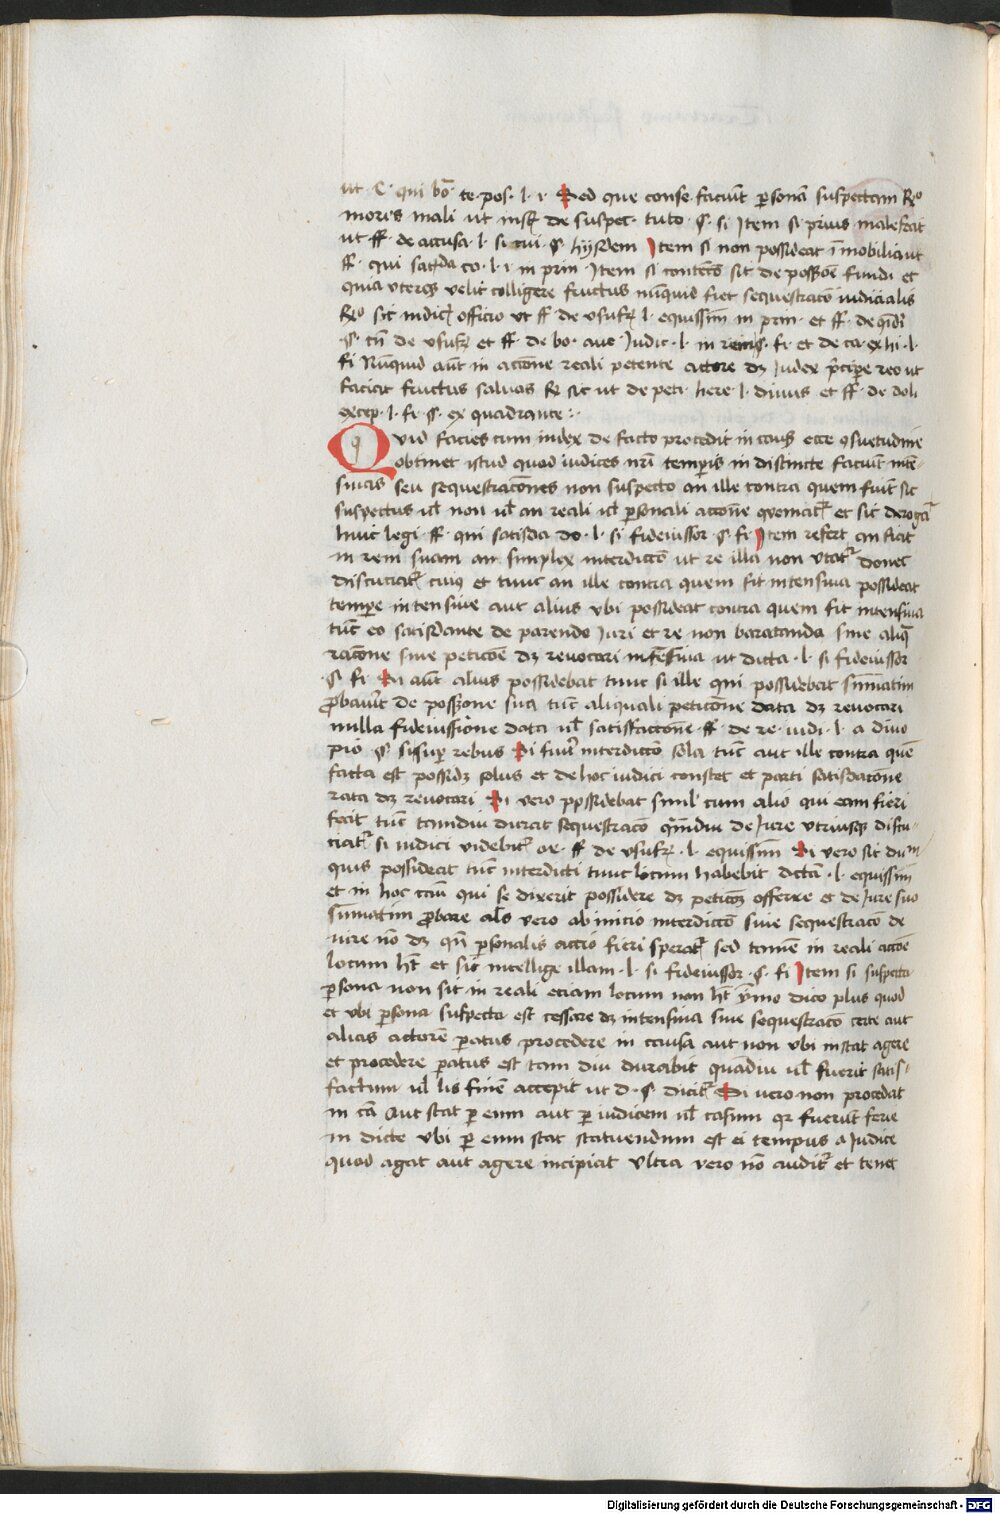 ut C· qui bo· te· pos· l· i· Sed que conse faciūt ꝑsonā suspectam Ro
moris mali ut insť de suspec· tuto· §· si Item si prius malefecit
ut ff· de accusa· l· si cui· §· hysdem Item si non possideat īmobilia ut
ff· qui satisda co· l· i· in prin· Item si contenc̄o sit de possōe fundi et
quia uterqꝫ velit colligere fructus nūquid fiet sequestracō iudicialis
Ro sic iudic̄ officio ut ff de usufr̄ l· equissim̄ in prin· et ff· de
§· tn̄ de usufr̄ et ff· de bo· auc Judic· l· in §· fi· et de ca· exhi· l·
fi Nūquid aūt in acc̄one reali petente actore dꝫ Judex p̄cipe reo ut
faciat fructus salvos R sic ut de peti· here· l· divus et ff· de doli
excep· l· fi· §· ex quadrante :·
Quid facies cum iudex de facto procedit in causis ecce ꝯsuetudine
obtinet istud quod iudices nr̄i temporis in distincte faciūt inten-
sivas seu sequestrac̄ones non suspecto an ille contra quem fiūt sit
suspectus ul̄ non ul̄ an reali ul̄ ꝑsonali acc̄one ꝯveniat᷑ et sic derogat᷑
huic legi ff· qui satisda do· l· si fideiussor §· fi Item refert an fiat
in rem suam an simplex interdicc̄o ut re illa non utat᷑ donec
discuciat᷑ cuiꝰ et tunc an ille contra quem fit intensiva possideat
tempore intensive aut alius ubi possideat contra quem fit intensiva
tūc eo satisdante de parendo Juri et re non baratanda sine aliqͣ
rac̄one sine petic̄oē dꝫ revocari intēsiva ut dicta· l· si fideiussor
§· fi· Si aūt alius possidebat tunc si ille qui possidebat sūmatim
ꝓbaverit de possōone sua tūc aliquali petic̄one data dꝫ revocari
nulla fideiussione data ul̄ satisfacc̄one ff· de re· iudi· l· a divo
pio §· si suꝑ rebus Si fuit interdicc̄o sola tūc aut ille contra quē
facta est possidꝫ solus et de hoc iudici constet et parti satisdac̄one
rata dꝫ revocari Si vero possidebat simul cum alio qui eam fieri
fecit tūc tamdiu durat sequestracō qͣmdiu de Jure utriusqꝫ discu-
ciat᷑ si iudici videbit᷑ ff· de usufr̄· l· equissim̄ Si vero sit du̅m
quis possideat tūc interdicti tunc locum habebit dcā· l· equissim̄
et in hoc casu qui se dixerit possidere dꝫ petic̄oꝫ offerre et de Jure suo
sūmatim ꝓbare al̄s vero ab inicio interdicc̄o sive sequestracō de
iure nō dꝫ qn̄ ꝑsonalis accio fieri sperat᷑ sed tamē in reali accōe
locum hꝫ et sic intellige illam· l· si fideiussor· §· fi Item si suspecta
ꝑsona non sit in reali eciam locum non hꝫ ymo dico plus quod
et ubi ꝑsona suspecta est cessare dꝫ intensiva sive sequestracō certe aut
alias actorē ꝑatus procedere in causa aut non ubi instat agere
et procedere ꝑatus est tam diu durabit quādiu ul̄ fuerit satis-
factum ul̄ lis finē accepit ut d· §· dicit᷑ Si vero non procedat
in cā Aut stat ꝑ eum aut ꝑ iudicem ul̄ casum qr̄ fuerūt ferie
in dicte ubi ꝑ eum stat statuendum est ei tempus a Judice
quod agat aut agere incipiat Ultra vero nō audit᷑ et tenet
Digitalisierung gefördert durch die Deutsche Forschungsgemeinschaft - DFG